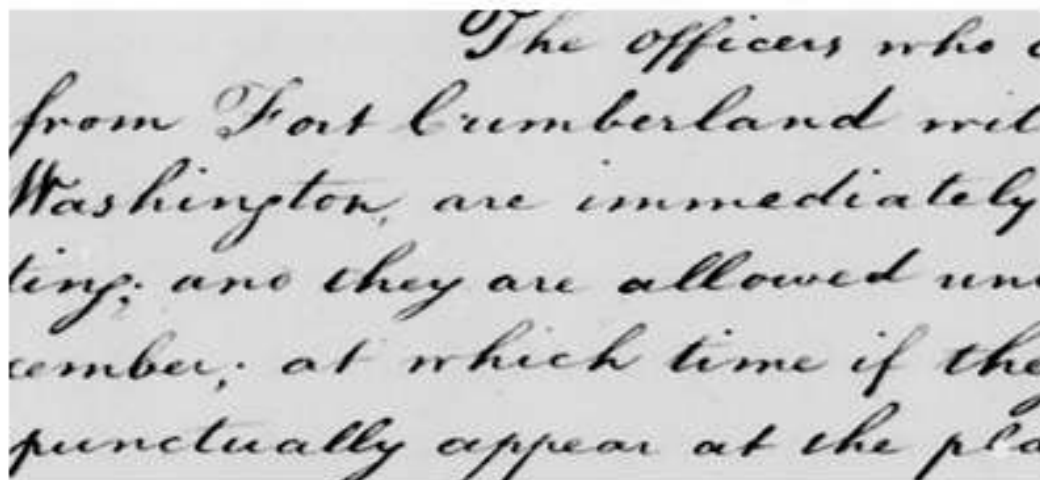 The officers who
from Fort Cumberland wil
Washington, are immediately
ting; and they are allowed un
cember; at which time if the
punctually appear at the pla